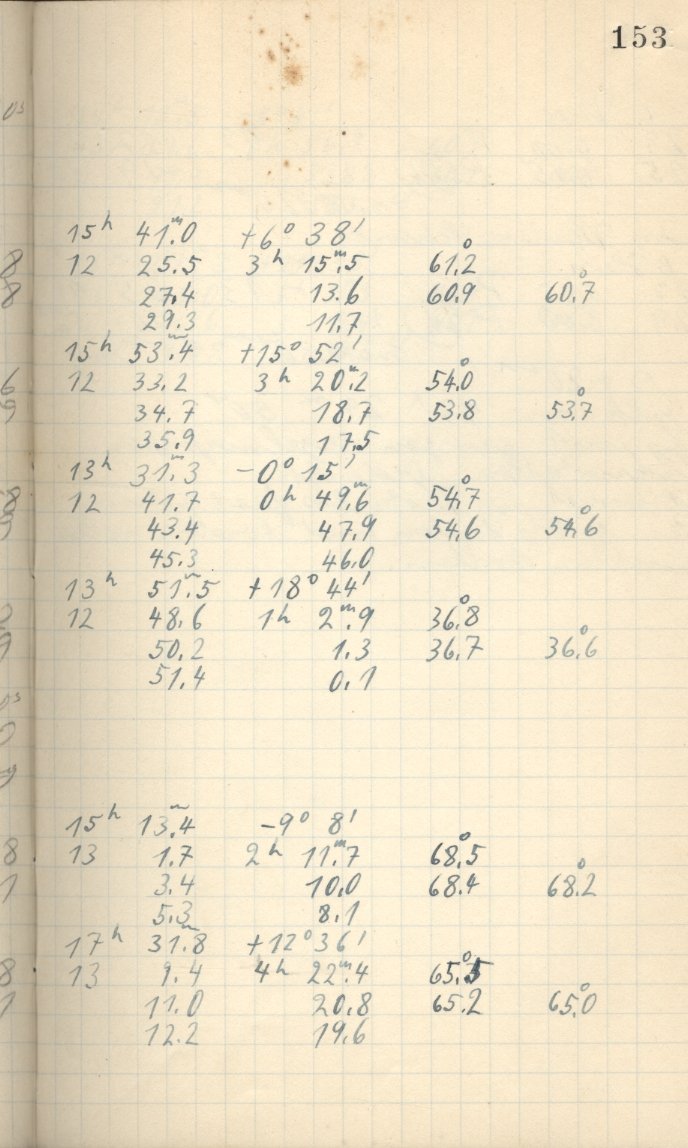 153
15ʰ 41ᵐ.0 +6° 38'
12 25.5 3ʰ 15ᵐ.5 61°.2
27.4 13.6 60.9 60°.7
29.3 11.7
15ʰ 53ᵐ.4 +15° 52'
12 33.2 3ʰ 20ᵐ.2 54°.0
34.7 18.7 53.8 53°.7
35.9 17.5
13ʰ 31ᵐ.3 -0° 15'
12 41.7 0ʰ 49ᵐ.6 54°.7
43.4 47.9 54.6 54°.6
45.3 46.0
13ʰ 51ᵐ.5 +18° 44'
12 48.6 1ʰ 2ᵐ.9 36°.8
50.2 1.3 36.7 36°.6
51.4 0.1
15ʰ 13ᵐ.4 -9° 8'
13 1.7 2ʰ 11ᵐ.7 68°.5
3.4 10.0 68.4 68°.2
5.3 8.1
17ʰ 31ᵐ.8 +12° 36'
13 9.4 4ʰ 22ᵐ.4 65°.5
11.0 20.8 65.2 65°.0
12.2 19.6